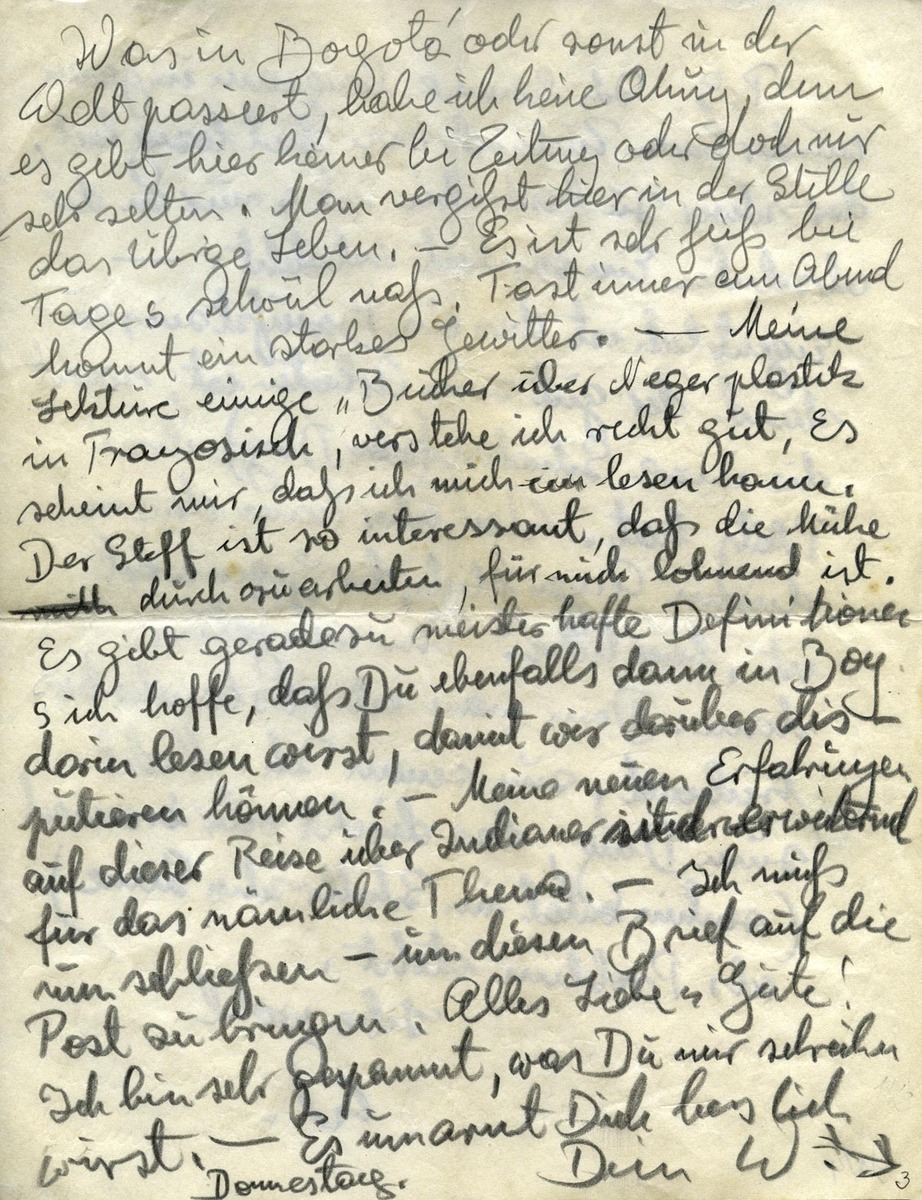 Was in Bogotá oder sonst in der
Welt passiert, habe ich keine Ahnung, denn
es gibt hier keinerlei Zeitung oder doch nur
sehr selten. Man vergißt hier in der Stille
das Übrige Leben. – Es ist sehr heiß bei
Tage u schwül naß. Fast immer am Abend
kommt ein starkes Gewitter. — Meine
Lektüre einige „Bücher über Negerplastik
in Französisch, verstehe ich recht gut, Es
scheint mir, daß ich mich ein lesen kann.
Der Stoff ist so interessant, daß die Mühe
durchzuarbeiten, für mich lohnend ist.
Es gibt geradezu meisterhafte Definitionen
u ich hoffe, daß Du ebenfalls dann in Bog.
darin lesen wirst, damit wir darüber dis-
putieren können. – Meine neuen Erfahrungen
auf dieser Reise über Indianer sind erweiternd
für das nämliche Thema. – Ich muß
nun schließen – um diesen Brief auf die
Post zu bringen. Alles Liebe u Gute!
Ich bin sehr gespannt, was Du mir schreiben
wirst. — Es umarmt Dich herzlich
Donnerstag. Dein W
3